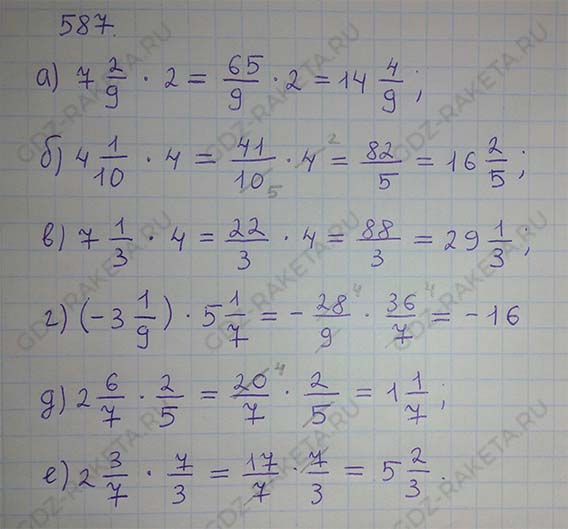 587.
а) 7 2/9 · 2 = 65/9 · 2 = 14 4/9;
б) 4 1/10 · 4 = 41/10 5 · 4 2 = 82/5 = 16 2/5;
в) 7 1/3 · 4 = 22/3 · 4 = 88/3 = 29 1/3;
г) (-3 1/9) · 5 1/7 = - 28 4/9 · 36 4/7 = - 16
д) 2 6/7 · 2/5 = 20 4/7 · 2/5 = 1 1/7;
е) 2 3/7 · 7/3 = 17/7 · 7/3 = 5 2/3.
GDZ-RAKETA.RU